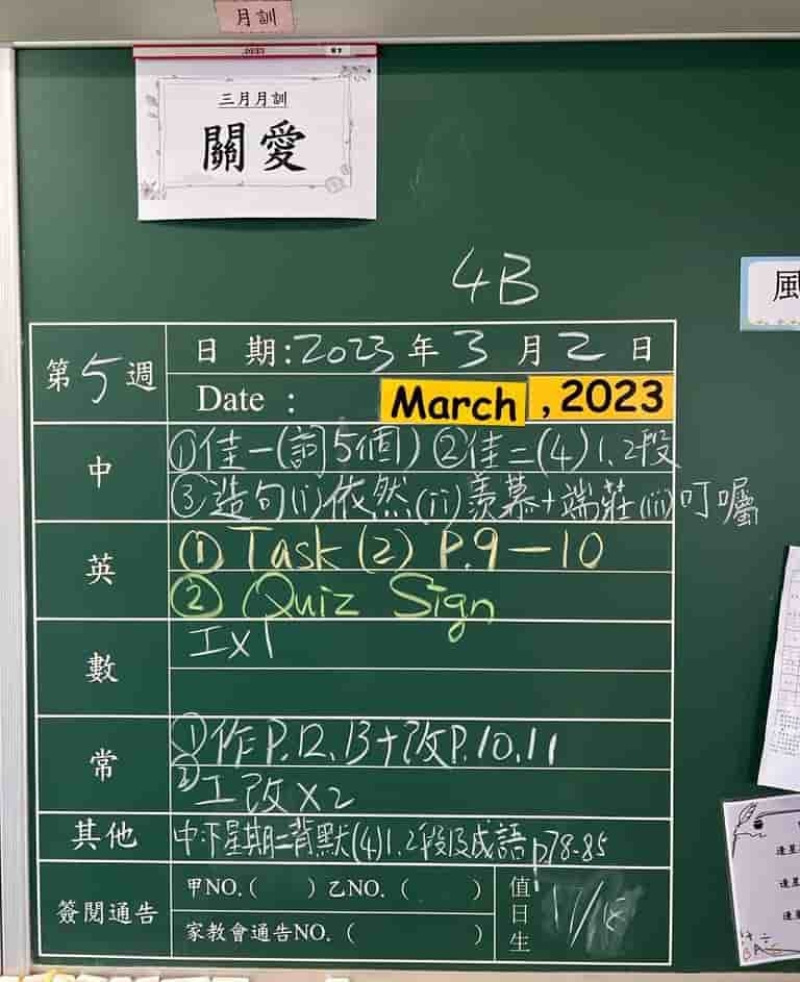 月訓
三月月訓
關愛
4B
風
第5週
日期:2023年3月2日
Date : March ,2023
中
①佳一(詞5個) ②佳二(4)1.2段
③造句(i)依然(ii)羨慕+端莊(iii)叮囑
英
① Task (2) P.9-10
② Quiz Sign
數
工x1
常
①作P.12、13+改P.10、11
②工改x2
其他
中:下星期二背默(4)1.2段及成語p78-85
簽閱通告
甲NO.( ) 乙NO. ( )
家教會通告NO. ( )
值日生
17/18